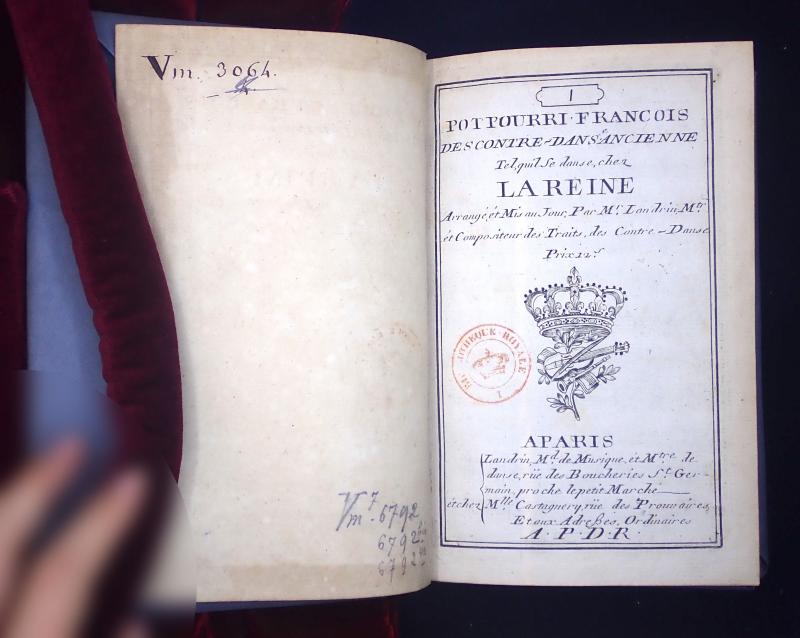 Vm. 3064.
Vm 7. 6792
6792 bis
6792
1
POTPOURRI·FRANCOIS
DES CONTRE-DANSE ANCIENNE
Tel qu'il Se danse, chez
LA REINE
Arrangé, ét Mis au Jour, Par Mr. Landrin, Mtr.
ét Compositeur des Traits, des Contre-Danse
Prix 12 s
BIBLIOTHEQUE ROYALE
A PARIS
Landrin, Md. de Musique, et Mtre de
danse, rüe des Boucheries St. Ger-
main, proche le petit Marché
ét chez Mlle Castagnery, rüe des Prouvaires,
Et aux Adreßes, Ordinaires
A·P·D·R·